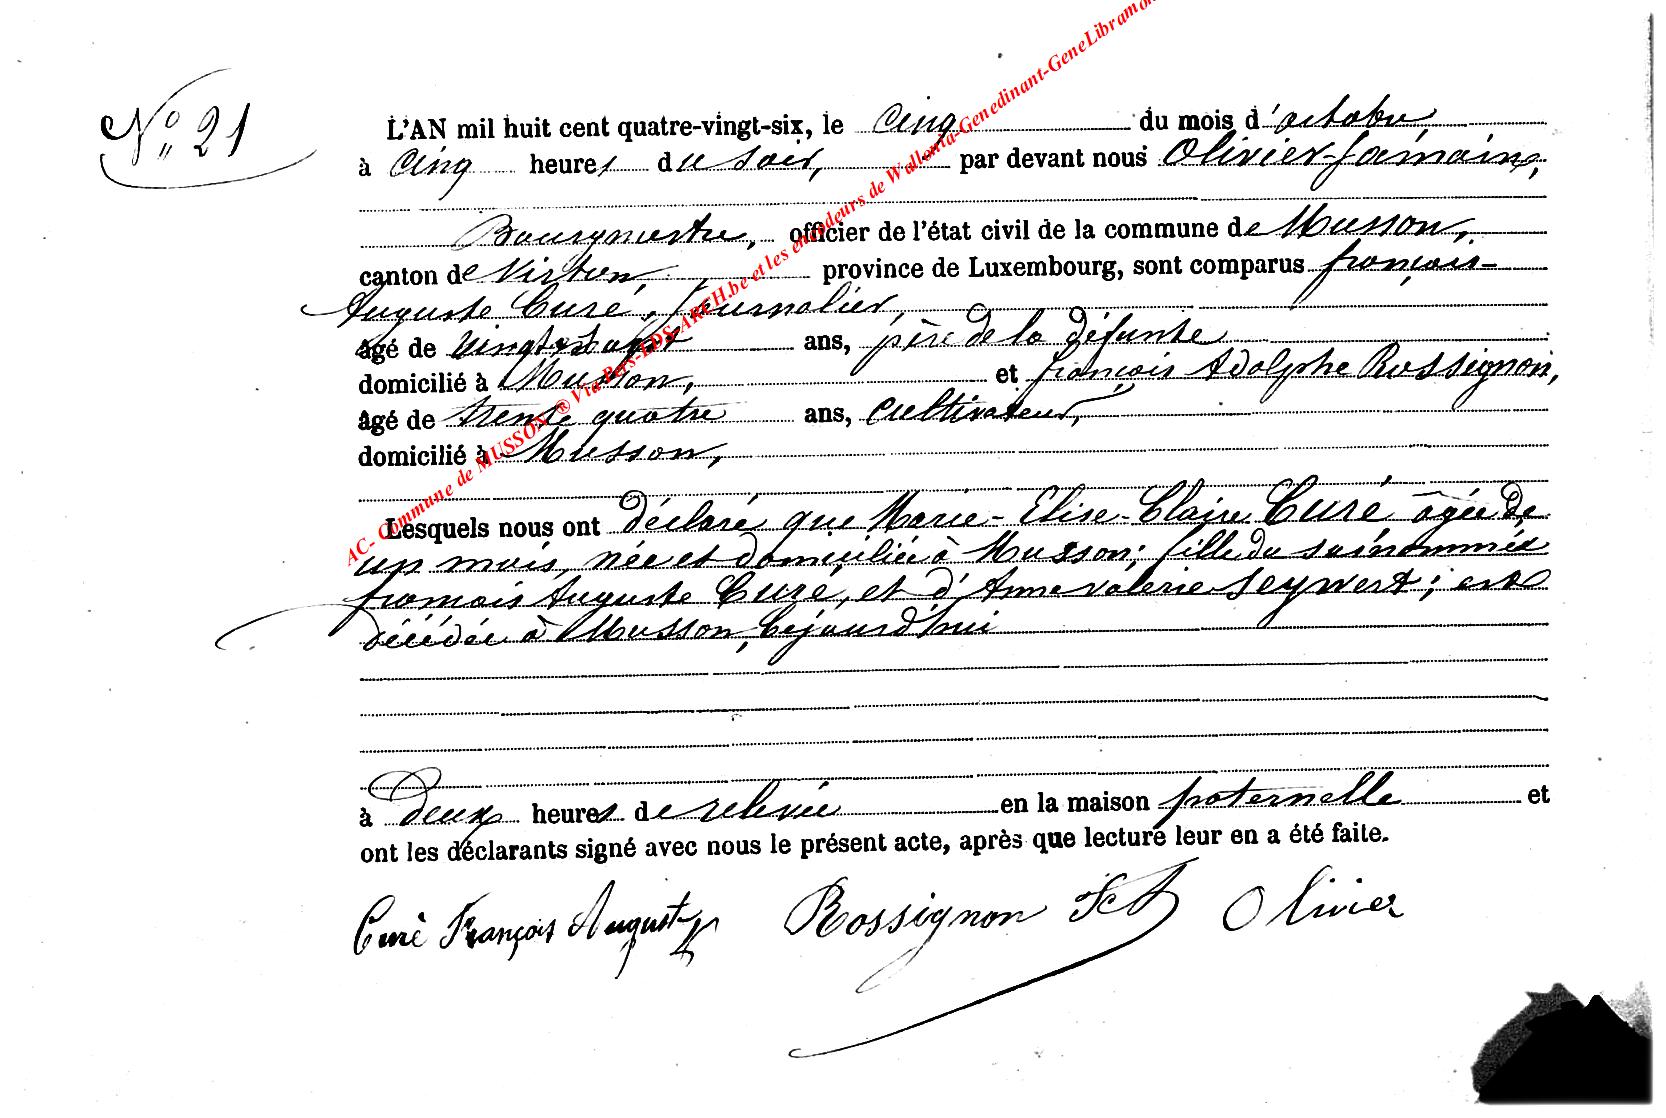 N° 21
L'AN mil huit cent quatre-vingt-six, le cinq du mois d'octobre,
à cinq heures du soir, par devant nous Olivier Jamain,
Bourgmestre, officier de l'état civil de la commune de Musson,
canton de Virton, province de Luxembourg, sont comparus françois-
Auguste Curé, journalier,
âgé de ans, père de la défunte
domicilié à Musson, et françois Adolphe Rossignon,
âgé de trente quatre ans, cultivateur,
domicilié à Musson,
Lesquels nous ont déclaré que Marie-Elise-Claire Curé âgée de
un mois, née et domiciliée à Musson; fille du susnommée
françois Auguste Curé, et d'Anne valérie Seywert; est
décédée à Musson, cejourd'hui
à deux heures de relevée en la maison paternelle et
ont les déclarants signé avec nous le présent acte, après que lecture leur en a été faite.
Curé François Auguste Rossignon Olivier
AC- Commune de MUSSON ® Via Pers-LDS-ARCH.be et les encodeurs de Wallonia-Genedinant-GeneLibramon